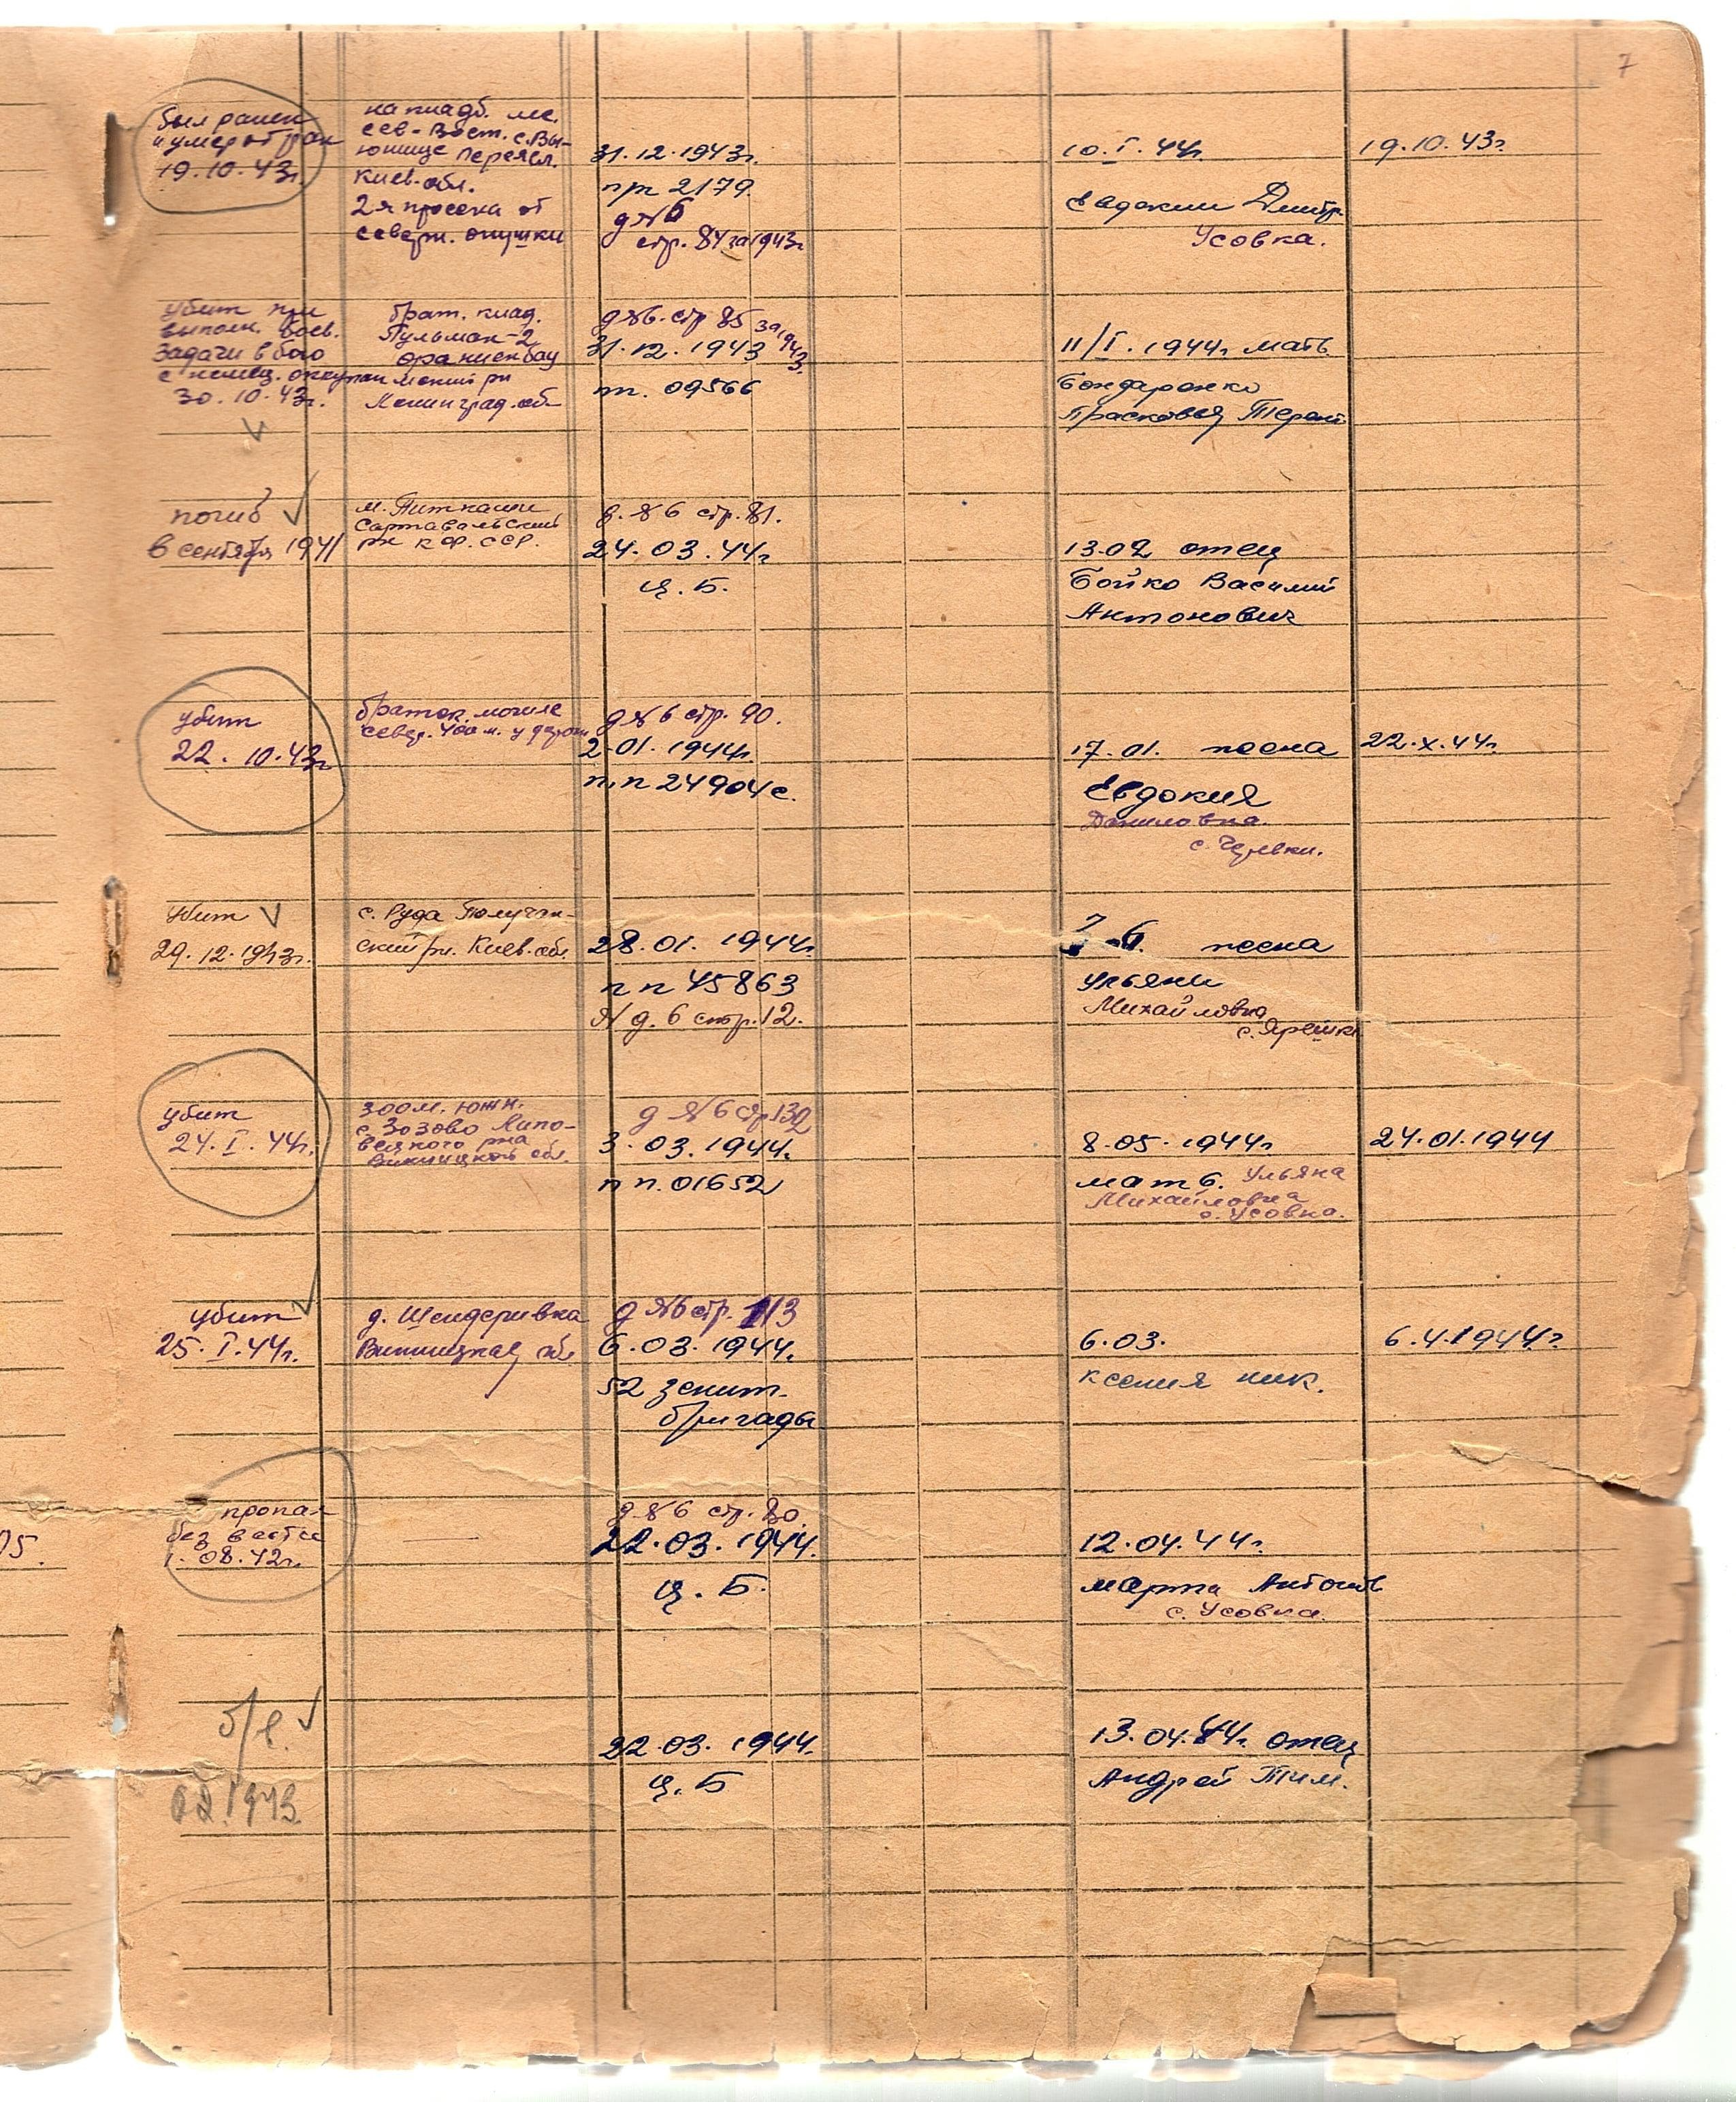 7
был ранен
и умер от ран
19.10.43г.
на кладб.
сев-вост. с.Вы-
Переясл.
Киев. обл.
2я просека от
северн. опушки
31.12.1943г.
пп 2179
д №6
стр. 84 за 1943г
10.I.44г.
Евдокии Дмитр.
Усовка.
19.10.43г.
убит при
выполн. боев.
задачи в бою
с немец. оккупан
30.10.43г.
брат. клад.
Пульман-2
ораниенбау
мский рн
Ленинград. об
д №6. стр 85 за 1943.
31.12.1943
пп. 09566
11/I.1944г. мать
Бондаренко
Прасковья
погиб
в сентября 1941
м. Питкаши
Сортавальский
рн КФ.ССР.
д. №6 стр. 81.
24.03.44г
Ц.Б.
13.02 отец
Бойко Василий
Антонович
убит
22.10.43г
братск. могиле
север. 400 м. у
д №6 стр. 90.
2.01.1944г.
п.п 24904с.
17.01.
Евдокия
Даниловна.
с.
22.X.44г.
убит
29.12.1943г.
с. Руда
ский рн. Киев. обл.
28.01.1944г.
пп 45863
№ д. 6 стр. 12.
Ульяни
Михайловна
с. Ярешки
убит
24.I.44г.
300м. южн.
с. Зозово Липо-
вецкого рна
Винницкой обл.
д №6 стр 132
3.03.1944г.
пп. 01652
8.05.1944г
мать. Ульяна
Михайловна
с. Усовка.
24.01.1944
убит
25.I.44г.
д. Шендеривка
Винницкая обл
д №6 стр. 113
6.03.1944г.
52 зенит.
бригады
6.03.
Ксения ник.
6.4.1944г.
05.
пропал
без вести
1.08.42г.
—
д №6 стр. 80.
22.03.1944.
Ц.Б.
12.04.44г.
марта Антонов
с. Усовка.
б/в.
02.1943.
22.03.1944г.
Ц.Б
13.04.44г. отец
Андрей Тим.